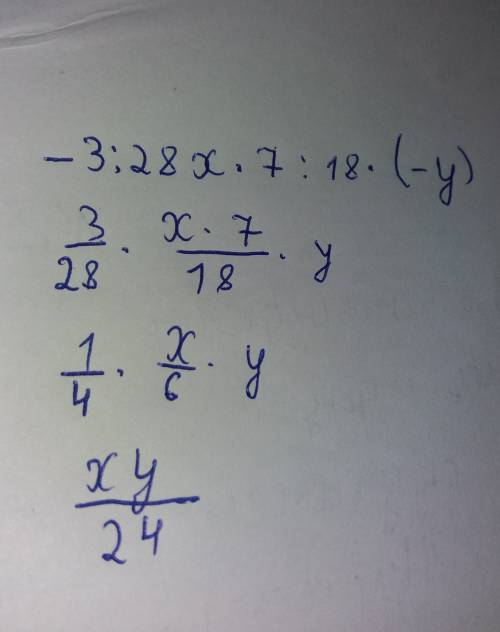 -3:28x·7:18·(-y)
3/28 · x·7/18 · y
1/4 · x/6 · y
xy/24